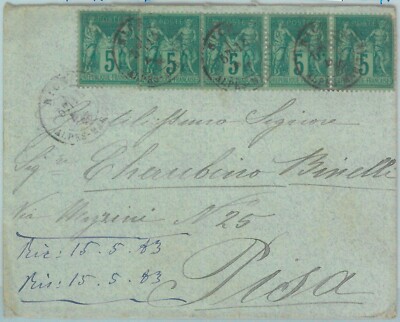 5 5 5 5 5
NICE
ALPES-M
Gentilissimo Signore
Sig.re Cherubino Binelli
Via Mazzini N 25
Pisa
Ric: 15.5.83
Ris: 15.5.83